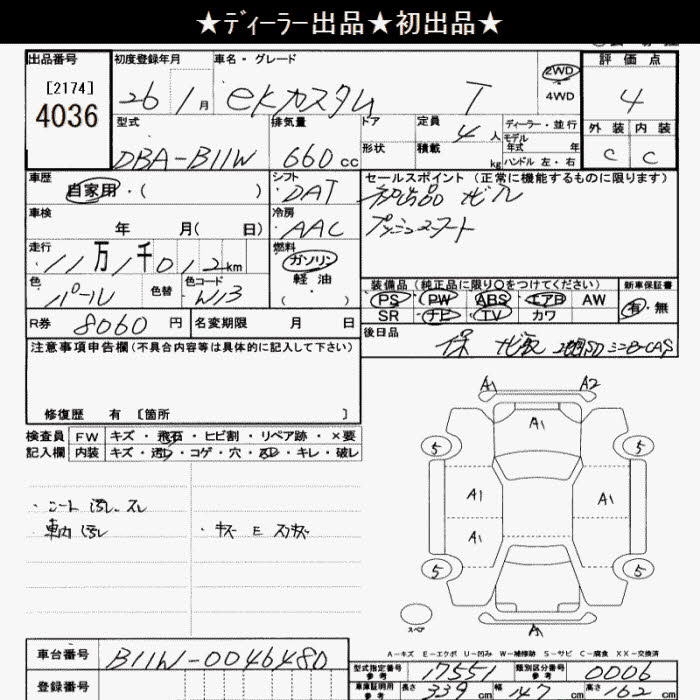 ★ディーラー出品★初出品★
出品番号 初度登録年月 車名・グレード 2WD 評価点
[2174] 26 1月 eKカスタム T 4WD 4
4036 型式 排気量 ドア 定員 4人 ディーラー・並行 外装 内装
モデル年式 年
DBA-B11W 660cc 形状 積載 kg ハンドル 左・右 C C
車歴 シフト セールスポイント(正常に機能するものに限ります)
自家用・( ) DAT 初出品 ナビ
車検 冷房 プッシュスタート
年 月( 日) AAC
走行 燃料
11万1千012km ガソリン
色 色替 色コード 軽油 装備品(純正品に限り○をつけてください) 新車保証書
パール W13 ( ・ ) PS PW ABS エアB AW 有・無
R券 8060円 名変期限 月 日 SR ナビ TV カワ
後日品 保 ナビ取
注意事項申告欄(不具合内容等は具体的に記入して下さい)
修復歴 有 [箇所 ]
検査員 FW キズ・飛石・ヒビ割・リペア跡・×要
記入欄 内装 キズ・汚レ・コゲ・穴・スレ・キレ・破レ
・シート汚レ、スレ
・車内汚レ ・キズ E スリキズ
A1 A2
A1
5 5
A1 A1
A1
5 5
スペア
A1
A-キズ E-エクボ U-凹み W-補修跡 S-サビ C-腐食 XX-交換済
車台番号 B11W-0046480
型式指定番号 参考 17551 類別区分番号 参考 0006
登録番号 車庫証明用 参考 長さ 339cm 幅 147cm 高さ 162cm